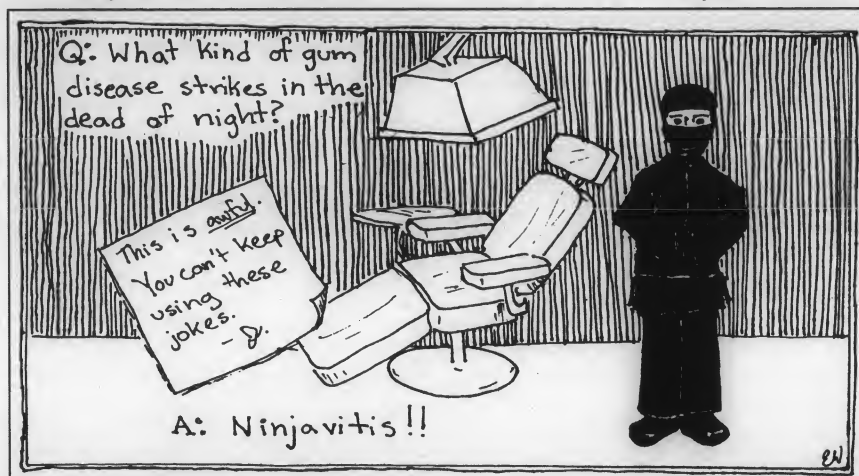 Q: What kind of gum
disease strikes in the
dead of night?
This is awful.
You can't keep
using these
jokes.
- J.
A: Ninjavitis!!
EW